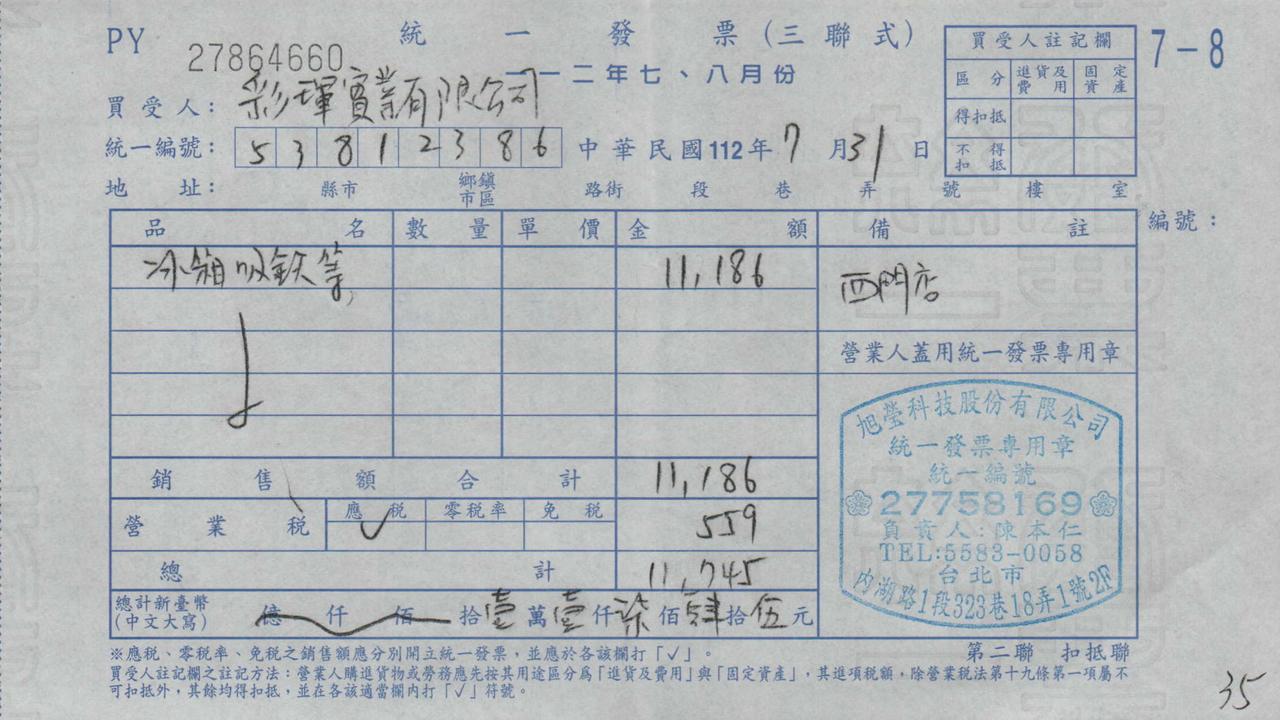 PY 27864660 統一發票(三聯式) 7-8
一一二年七、八月份
買受人: 彩琿實業有限公司
統一編號: 53812386 中華民國112年7月31日
地址: 縣市 鄉鎮市區 路街 段 巷 弄 號 樓 室
買受人註記欄
區分 進貨及費用 固定資產
得扣抵
不得扣抵
品名 數量 單價 金額 備註 編號:
冰箱吸鉄等 11,186 西門店
營業人蓋用統一發票專用章
銷售額合計 11,186
營業稅 應稅 ✓ 零稅率 免稅 559
總計 11,745
總計新臺幣(中文大寫) 億仟佰拾壹萬壹仟柒佰肆拾伍元
旭瑩科技股份有限公司
統一發票專用章
統一編號
27758169
負責人:陳本仁
TEL:5583-0058
台北市
內湖路1段323巷18弄1號2F
※應稅、零稅率、免稅之銷售額應分別開立統一發票,並應於各該欄打「✓」。 第二聯 扣抵聯
買受人註記欄之註記方法:營業人購進貨物或勞務應先按其用途區分為「進貨及費用」與「固定資產」,其進項稅額,除營業稅法第十九條第一項屬不
可扣抵外,其餘均得扣抵,並在各該適當欄內打「✓」符號。
35